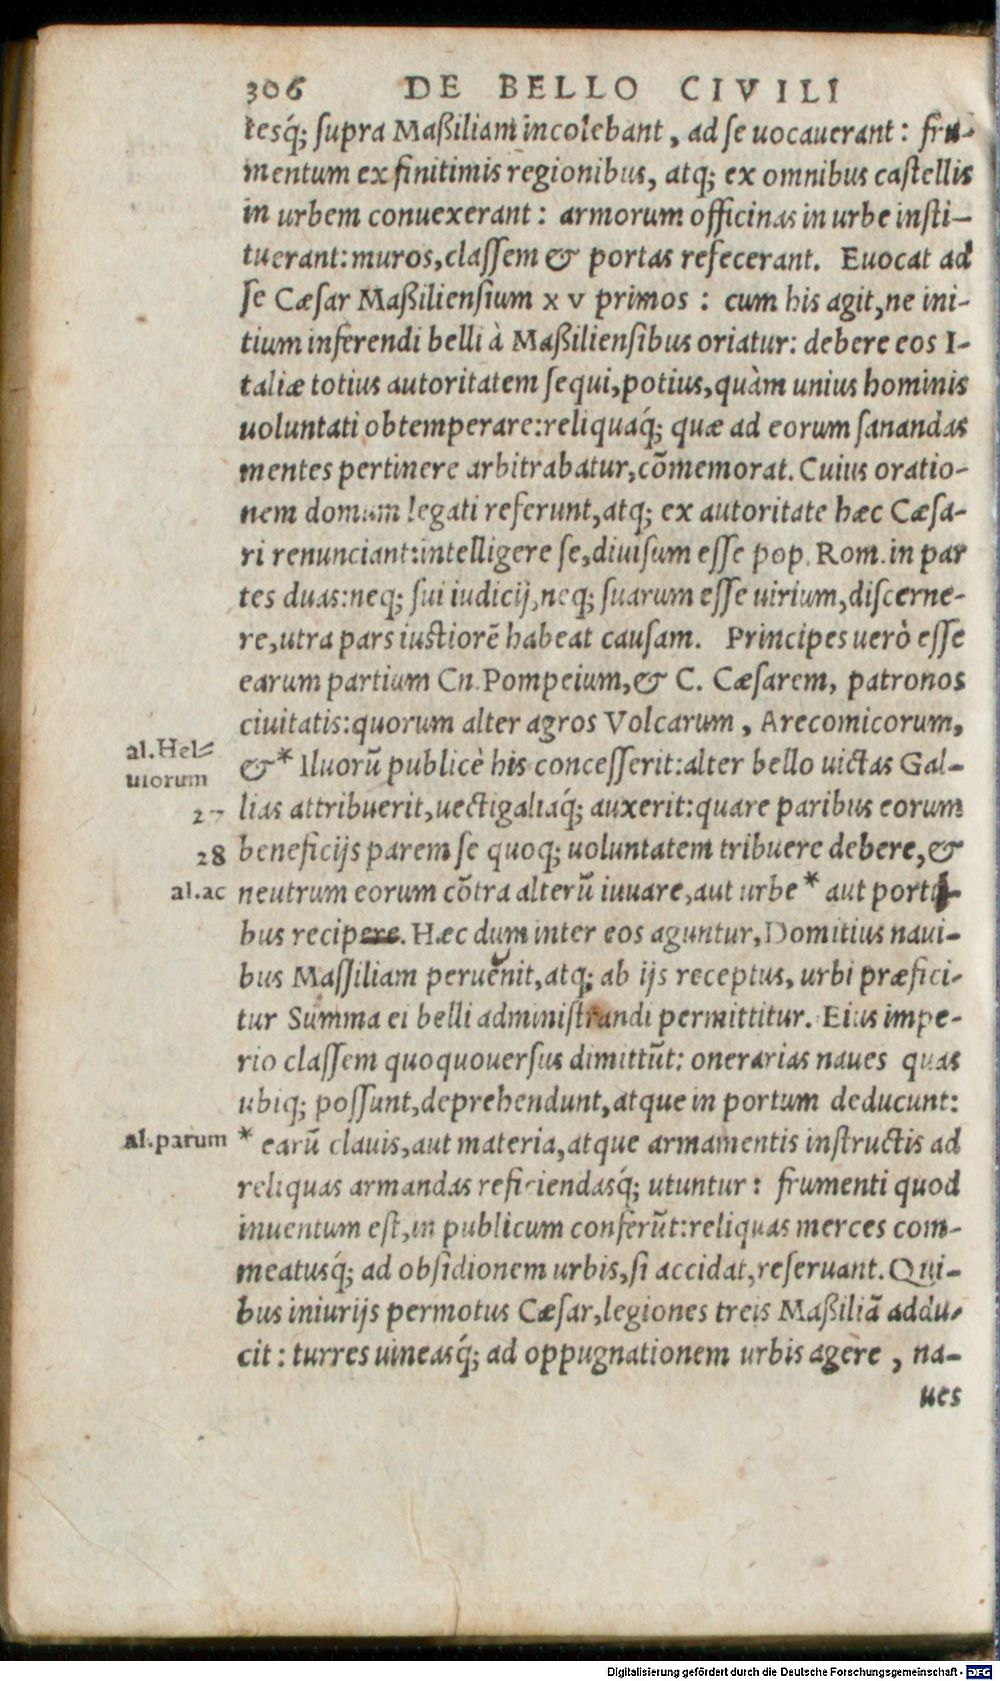 306 DE BELLO CIVILI
tesq́; ſupra Maßiliam incolebant, ad se uocauerant: fru-
mentum ex finitimis regionibus, atq; ex omnibus caſtellis
in urbem conuexerant: armorum officinas in urbe inſti-
tuerant: muros, claſſem & portas refecerant. Euocat ad
ſe Cæſar Maßilienſium x v primos: cum his agit, ne ini-
tium inferendi belli à Maßilienſibus oriatur: debere eos I-
taliæ totius autoritatem ſequi, potius, quàm unius hominis
uoluntati obtemperare: reliquaq́; quæ ad eorum ſanandas
mentes pertinere arbitrabatur, cõmemorat. Cuius oratio-
nem domum legati referunt, atq; ex autoritate hæc Cæſa-
ri renunciant: intelligere ſe, diuiſum eſſe pop. Rom. in par
tes duas: neq; ſui iudicij, neq; ſuarum eſſe uirium, diſcerne-
re, utra pars iuſtiorẽ habeat cauſam. Principes uerò eſſe
earum partium Cn. Pompeium, & C. Cæſarem, patronos
ciuitatis: quorum alter agros Volcarum, Arecomicorum,
al. Hel-
uiorum
& * Iluorũ publicè his conceſſerit: alter bello uictas Gal-
27 lias attribuerit, uectigaliaq́; auxerit: quare paribus eorum
28 beneficijs parem ſe quoq; uoluntatem tribuere debere, &
al. ac neutrum eorum cõtra alterũ iuuare, aut urbe * aut porti-
bus recipere. Hæc dum inter eos aguntur, Domitius naui-
bus Maſſiliam peruenit, atq; ab ijs receptus, urbi præfici-
tur Summa ei belli adminiſtrandi permittitur. Eius impe-
rio claſſem quoquouerſus dimittũt: onerarias naues quas
ubiq; poſſunt, deprehendunt, atque in portum deducunt:
al. parum * earũ clauis, aut materia, atque armamentis inſtructis ad
reliquas armandas reficiendasq́; utuntur: frumenti quod
inuentum eſt, in publicum conferũt: reliquas merces com-
meatusq́; ad obſidionem urbis, ſi accidat, reſeruant. Qui-
bus iniurijs permotus Cæſar, legiones treis Maßiliã addu-
cit: turres uineasq́; ad oppugnationem urbis agere, na-
ues
Digitalisierung gefördert durch die Deutsche Forschungsgemeinschaft - DFG